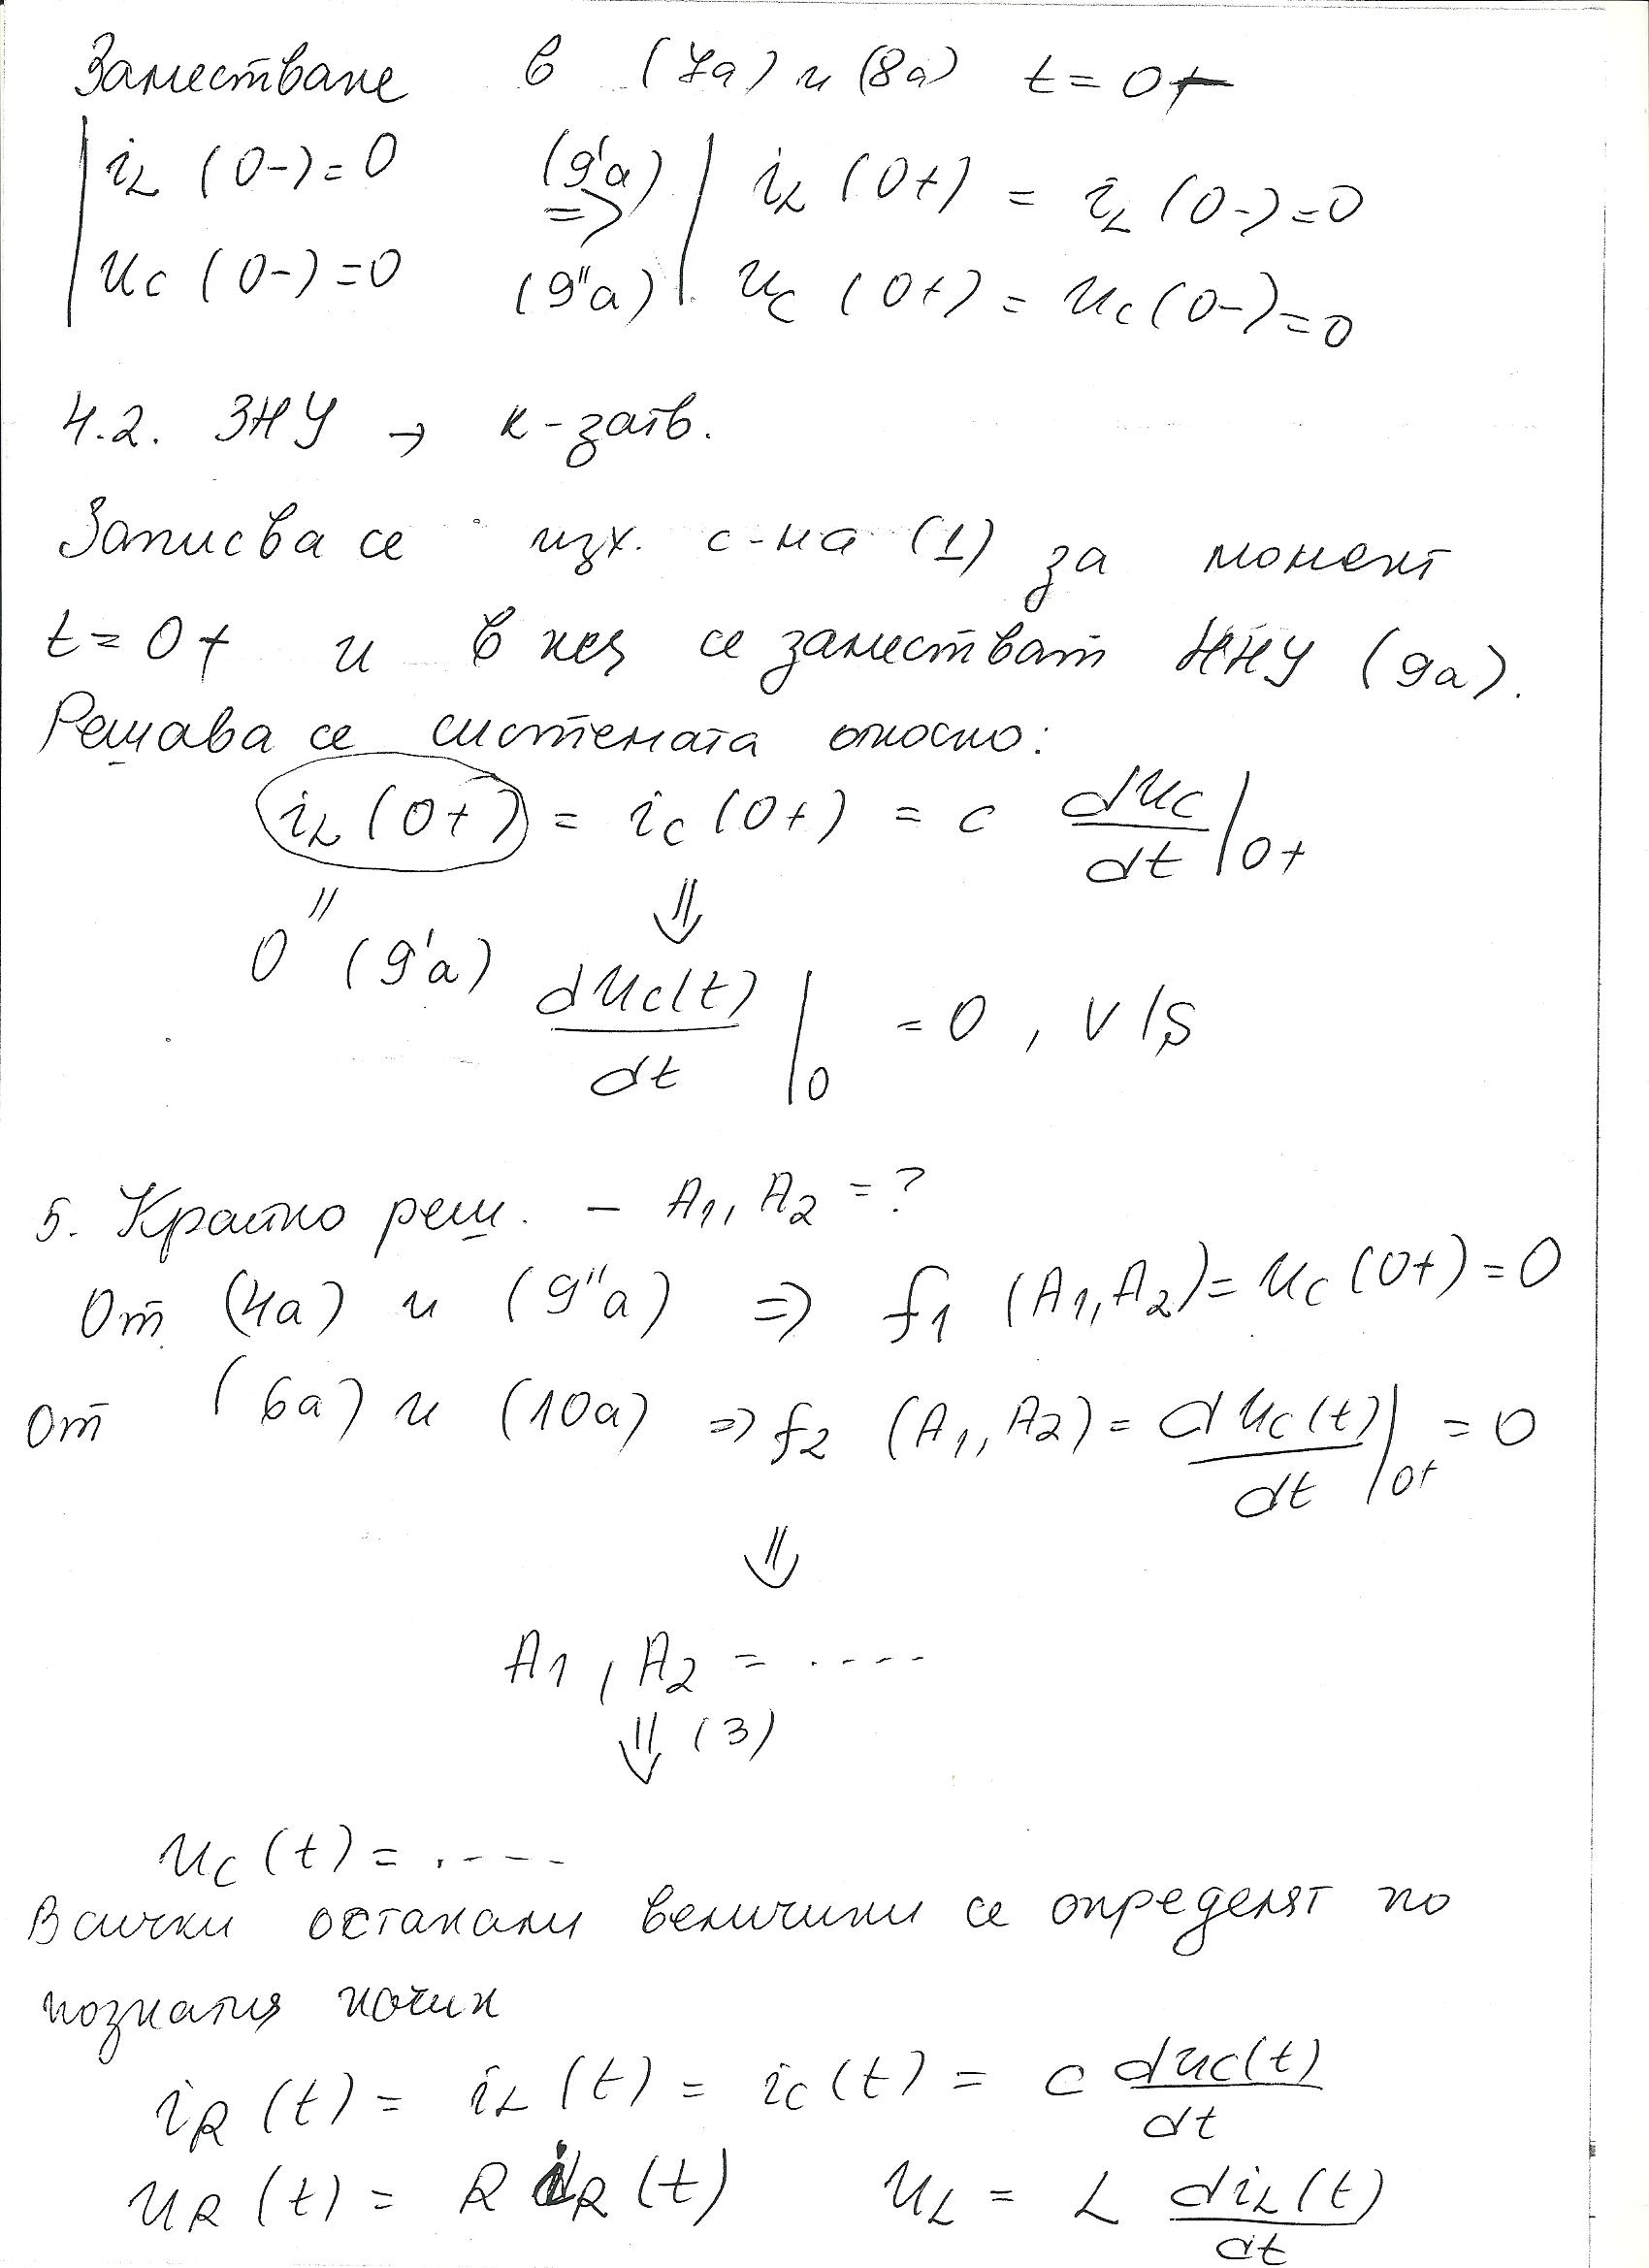 Заместване в (7а) и (8а) t = 0+
iL (0-) = 0 (9'a) iL (0+) = iL (0-) = 0
=>
uc (0-) = 0 (9"a) uc (0+) = uc (0-) = 0
4.2. ЗНУ → к-затв.
Записва се изх. с-ма (1) за момент
t = 0+ и в нея се заместват ННУ (9а).
Решава се системата относно:
iL (0+) = ic (0+) = c duc/dt |0+
0 (9'a) ⇓
duc(t)/dt |0 = 0, V/S
5. Кратко реш. – A1, A2 = ?
От (4а) и (9"а) => f1 (A1, A2) = uc (0+) = 0
От (6а) и (10а) => f2 (A1, A2) = duc(t)/dt |0+ = 0
⇓
A1, A2 = ....
⇓ (3)
uc (t) = ....
Всички останали величини се определят по
познатия начин
iR (t) = iL (t) = ic (t) = c duc(t)/dt
uR (t) = R iR (t) uL = L diL(t)/dt